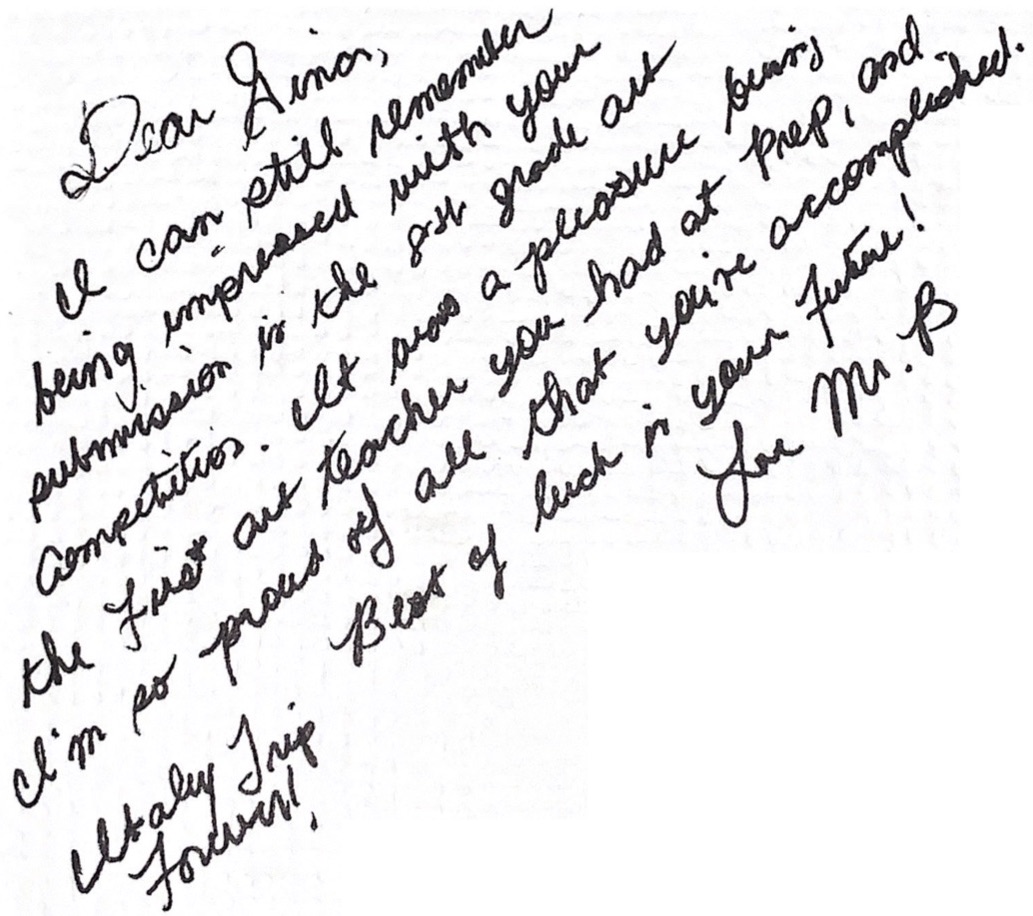 Dear Gina,
I can still remember
being impressed with your
submission in the 8th grade art
competition. It was a pleasure being
the first art teacher you had at Prep, and
I'm so proud of all that you've accomplished.
Best of luck in your future!
Mr. B
Italy Trip
Forever!